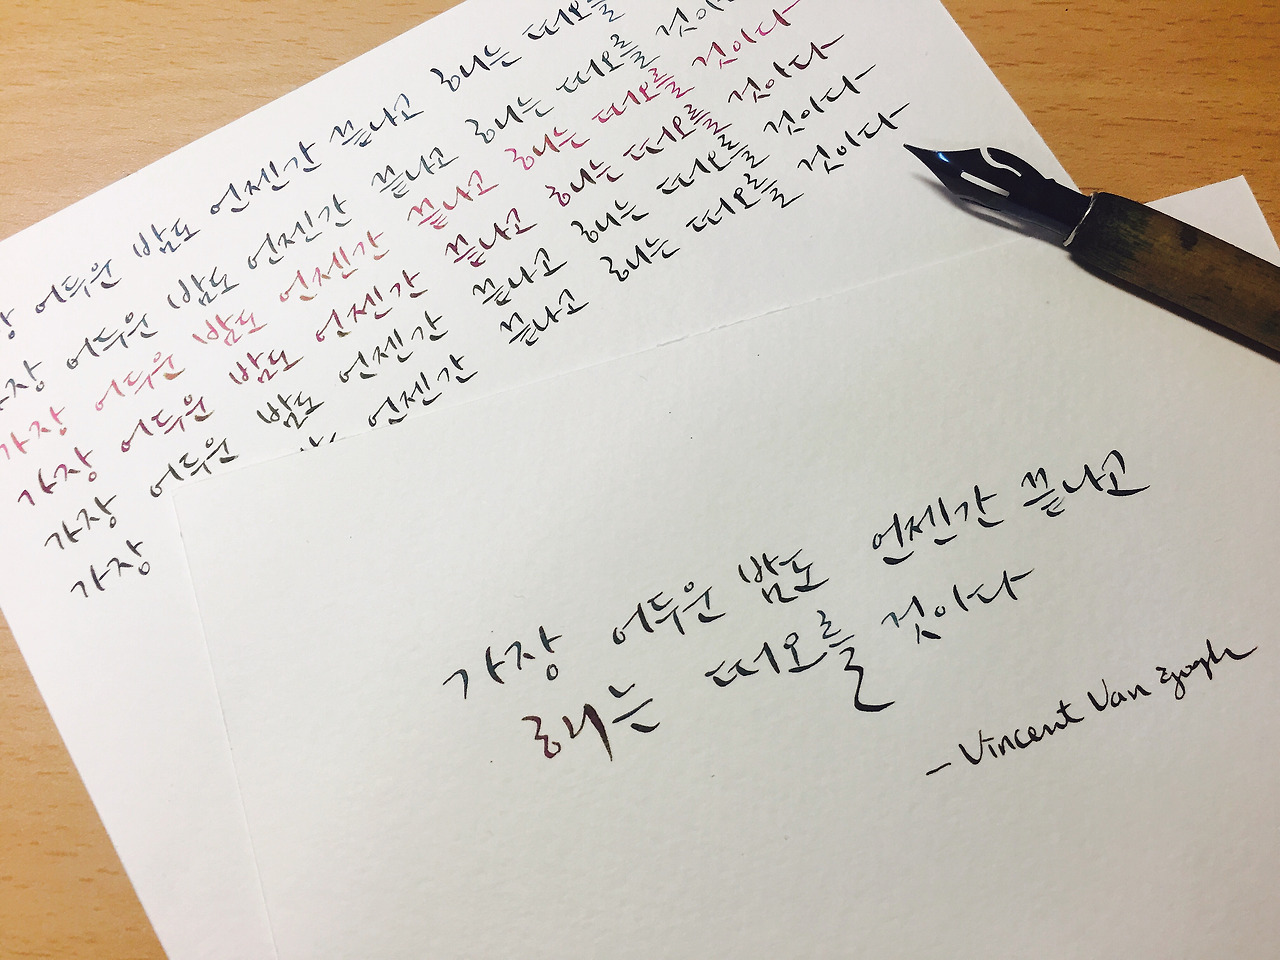 어두운 밤도 언젠간 끝나고 해는 떠오를
어두운 밤도 언젠간 끝나고 해는 떠오를 것이다
가장 어두운 밤도 언젠간 끝나고 해는 떠오를 것이다
가장 어두운 밤도 언젠간 끝나고 해는 떠오를 것이다
가장 어두운 밤도 언젠간 끝나고 해는 떠오를 것이다
가장 언젠간 끝나고 해는 떠오를 것이다
가장 어두운 밤도 언젠간 끝나고
해는 떠오를 것이다
- Vincent Van Gogh